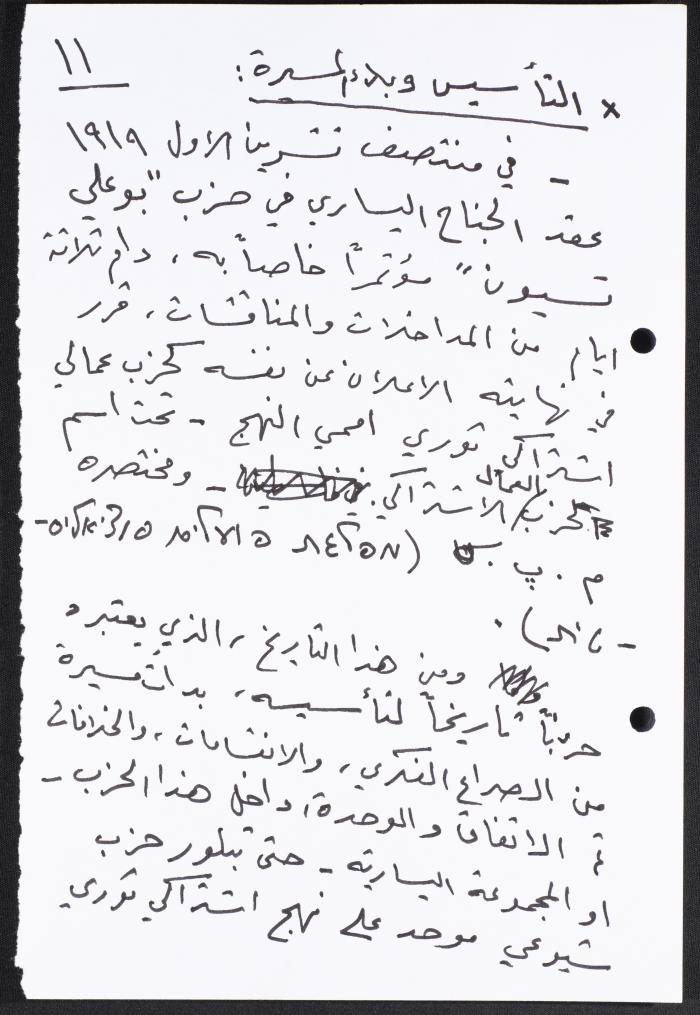 ١١
× التأسيس وبدء المسيرة :
- في منتصف تشرين الاول ١٩١٩
عقد الجناح اليساري في حزب "بوعلي
تسيون" مؤتمراً خاصاً به ، دام ثلاثة
ايام من المداخلات والمناقشات ، قرر
في نهايته الاعلان عن نفسه كحزب عمالي
اشتراكي ثوري اممي النهج - تحت اسم
حزب العمال الاشتراكي - ومختصره
م . پ . س (מפלגת פועלים סוציאליס-
- טית) .
ومن هذا التاريخ ، الذي يعتبره
حزبنا تاريخاً لتأسيسه ، بدأت مسيرة
من الصراع الفكري ، والانقسامات ، والخلافات
ثم الاتفاق والوحدة ، داخل هذا الحزب -
او المجموعة اليسارية - حتى تبلور حزب
شيوعي موحد على نهج اشتراكي ثوري